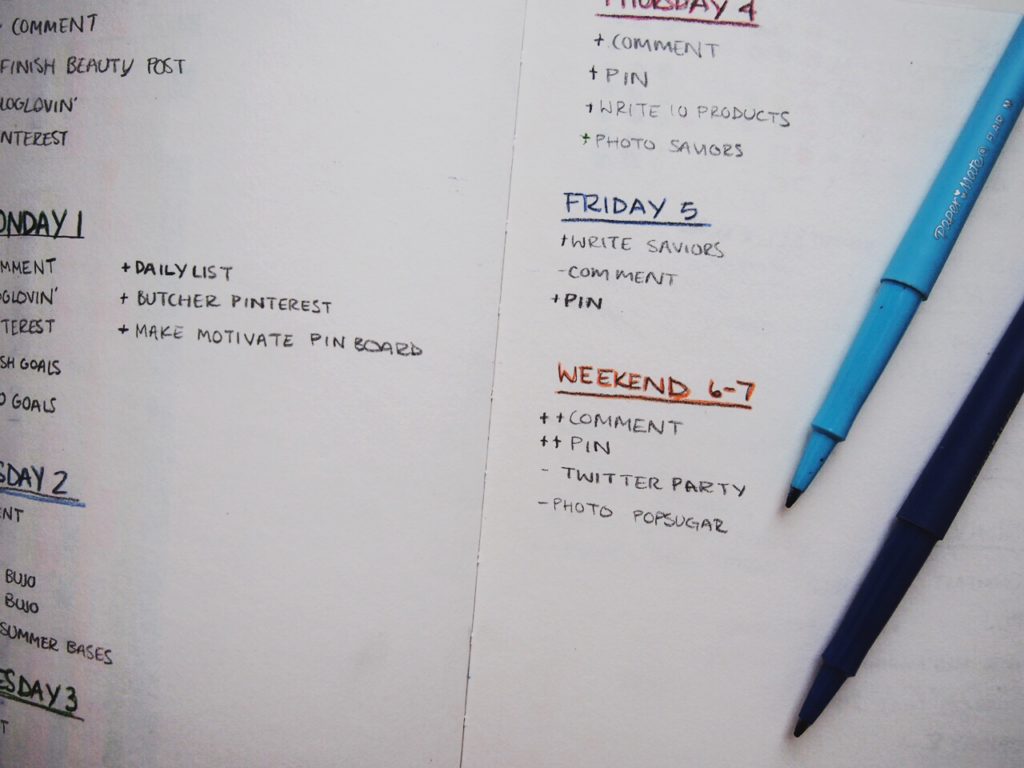 - COMMENT
FINISH BEAUTY POST
LOGLOVIN'
NTEREST
ONDAY 1
MMENT
GLOVIN'
TEREST
SH GOALS
O GOALS
+ DAILY LIST
+ BUTCHER PINTEREST
+ MAKE MOTIVATE PIN BOARD
SDAY 2
ENT
BUJO
BUJO
SUMMER BASES
ESDAY 3
T
THURSDAY 4
+ COMMENT
+ PIN
+ WRITE 10 PRODUCTS
+ PHOTO SAVIORS
FRIDAY 5
+ WRITE SAVIORS
- COMMENT
+ PIN
WEEKEND 6-7
+ + COMMENT
++ PIN
- TWITTER PARTY
- PHOTO POPSUGAR
Paper Mate FLAIR M